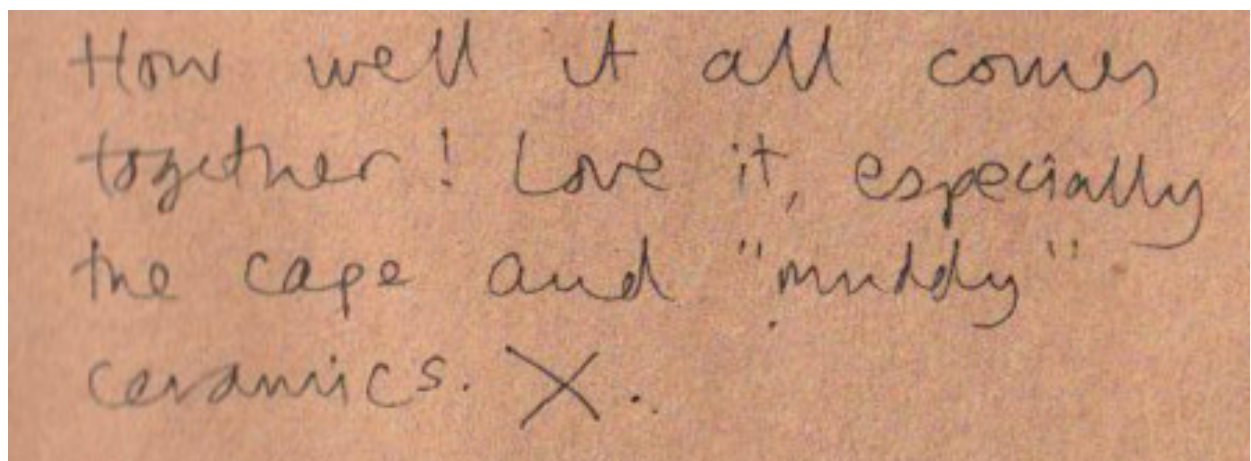 How well it all comes
together! Love it, especially
the cape and "muddy"
ceramics. X.